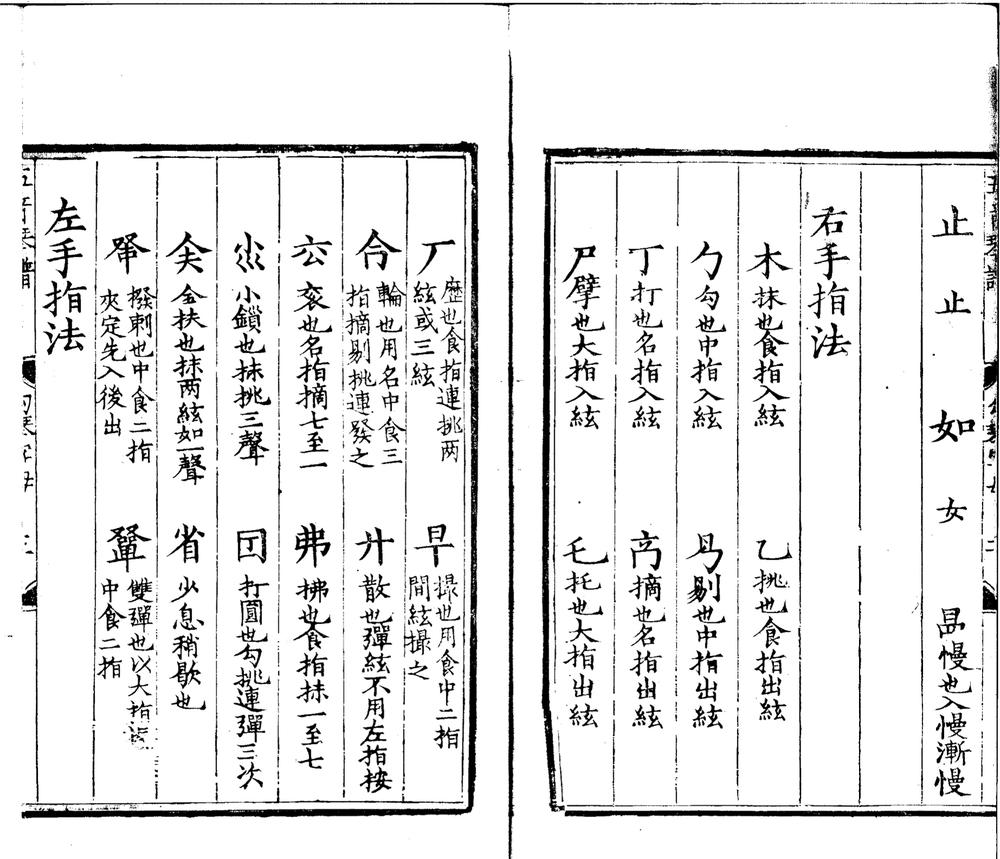 止 止 如 女 昷慢也入慢漸慢
右手指法
木 抹也食指入絃 乙 挑也食指出絃
勹 勾也中指入絃 剔也中指出絃
丁 打也名指入絃 摘也名指出絃
尸 擘也大指入絃 乇 托也大指出絃
厂 歷也食指連挑两絃或三絃 早 撮也用食中二指間絃撮之
合 輪也用名中食三指摘剔挑連發之 廾 散也彈絃不用左指按
厺 衮也名指摘七至一 弗 拂也食指抹一至七
小鎖也抹挑三聲 打圓也勾挑連彈三次
全扶也抹两絃如一聲 省 少息稍歇也
撥剌也中食二指夾定先入後出 雙彈也以大指 中食二指
左手指法
五音琴譜